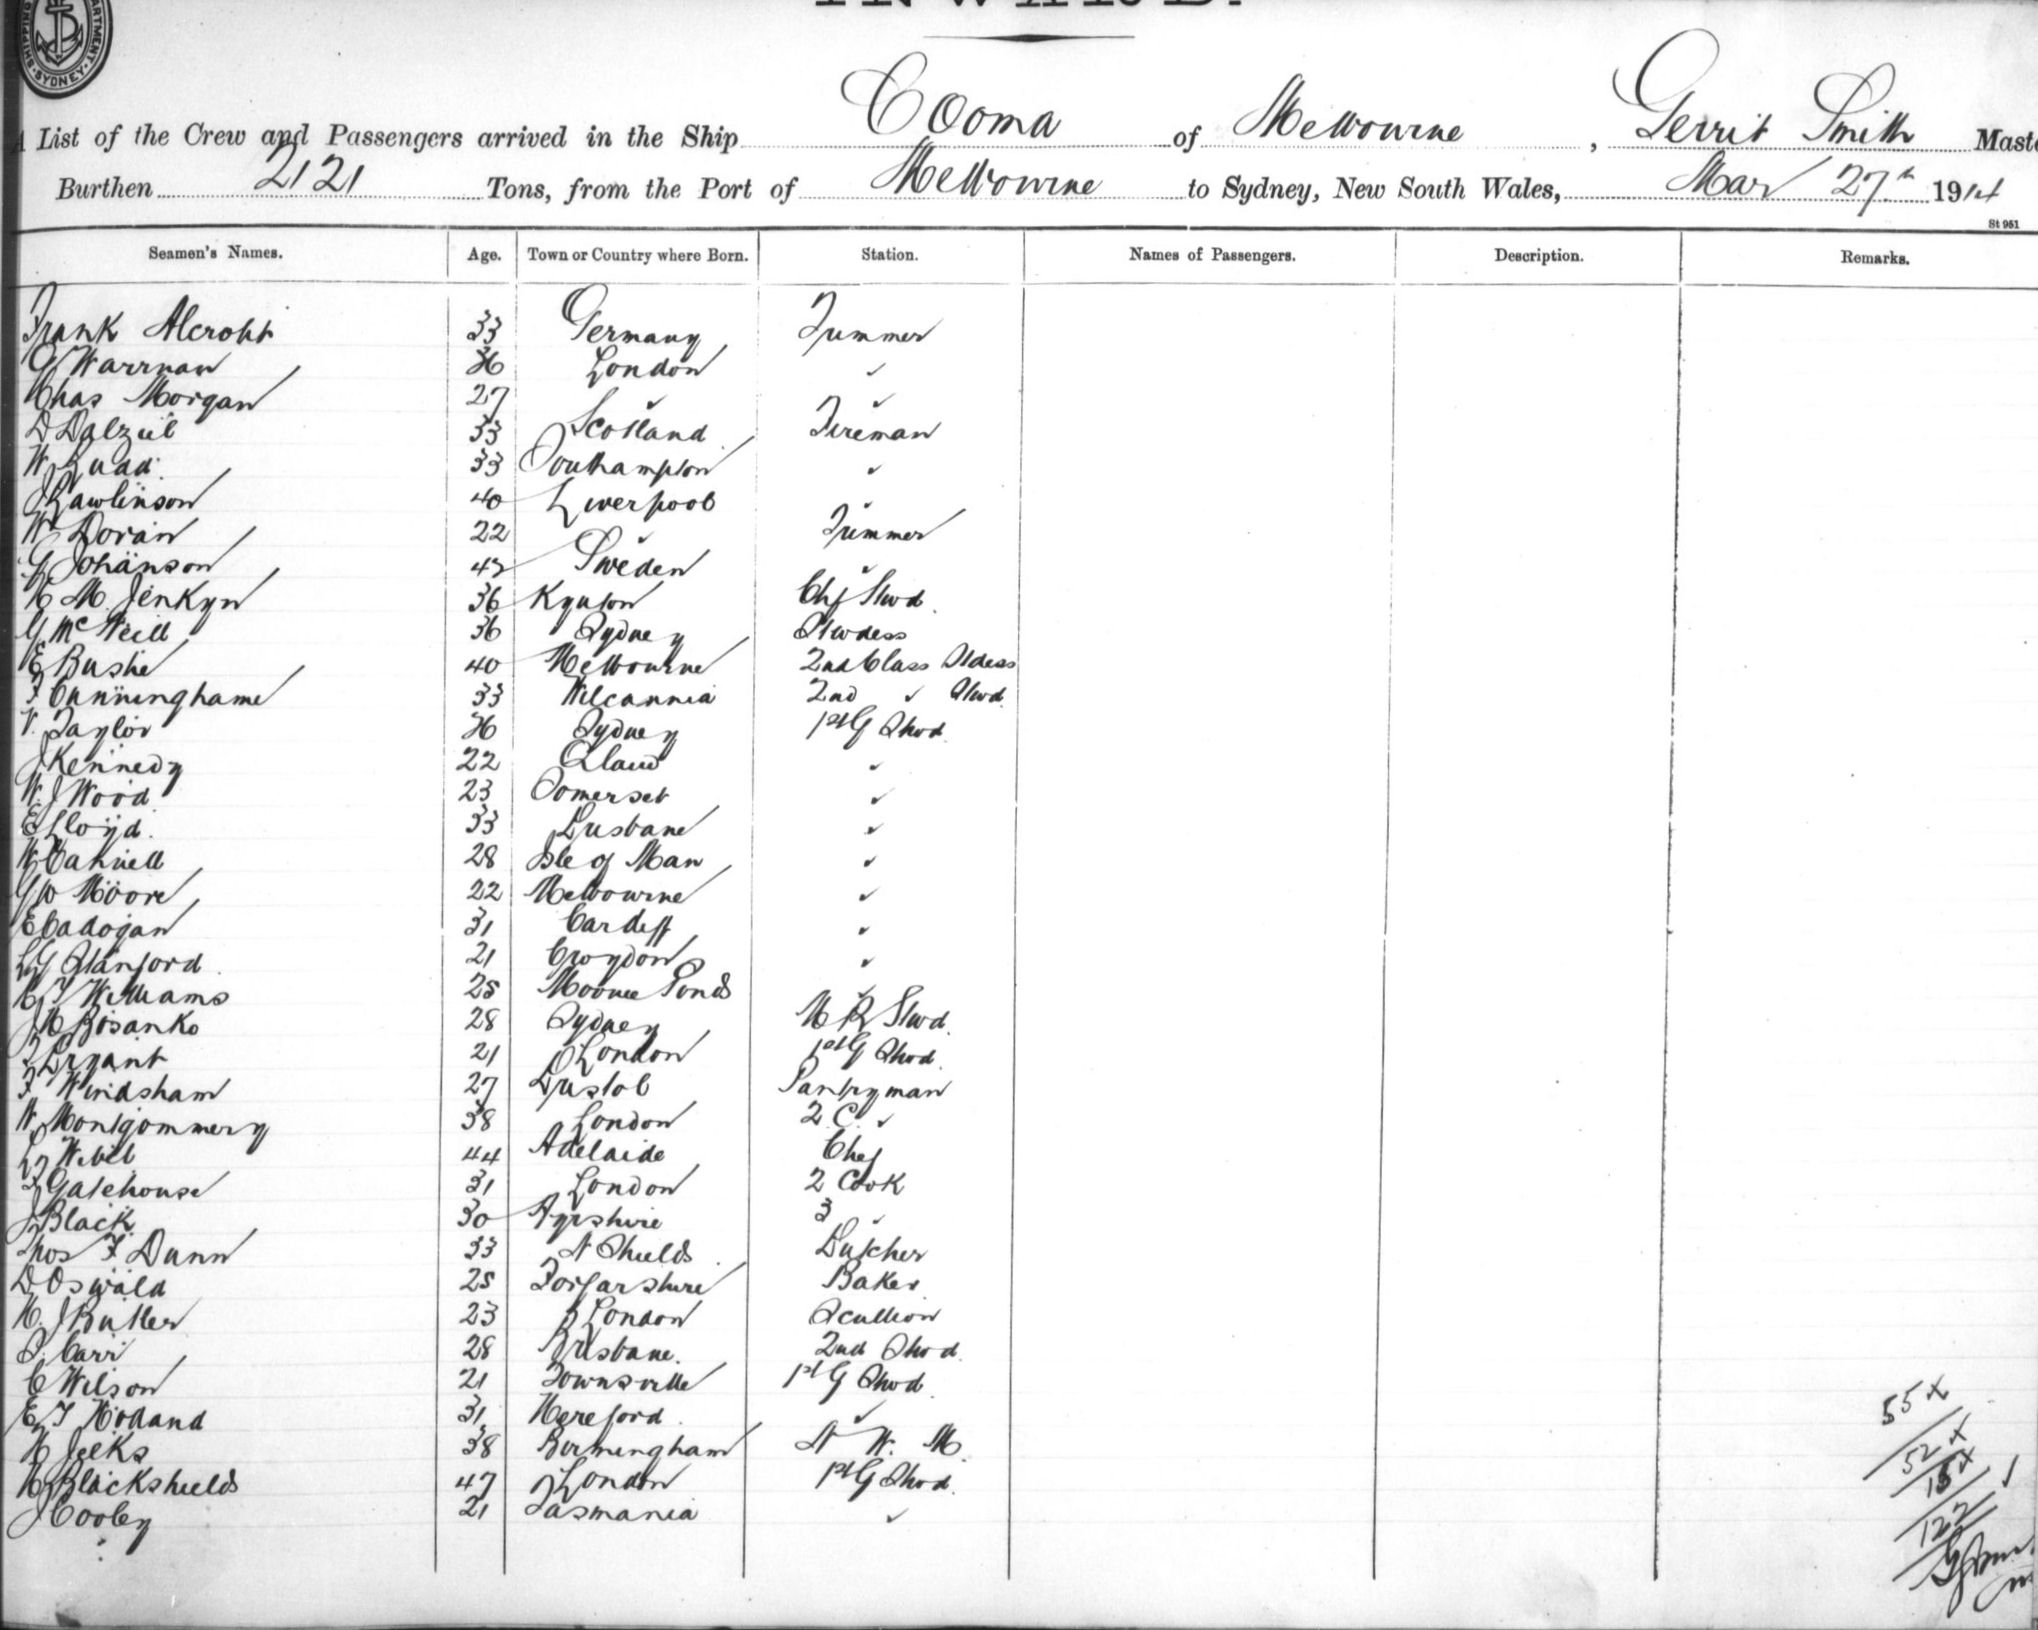 SHIPPING DEPARTMENT · SYDNEY ·
INWARD.
A List of the Crew and Passengers arrived in the Ship Cooma of Melbourne, Gerrit Smith Maste
Burthen 2121 Tons, from the Port of Melbourne to Sydney, New South Wales, Mar 27th 1914
St 951
Seamen's Names. Age. Town or Country where Born. Station. Names of Passengers. Description. Remarks.
Frank Alcroft 33 Germany Trimmer
G Warrnan 36 London ✓
Chas Morgan 27 ✓ ✓
D Dalziel 33 Scotland Fireman
W Quad 33 Southampton ✓
J Rawlinson 40 Liverpool ✓
W Doran 22 ✓ Trimmer
G Johanson 42 Sweden ✓
H M. Jenkyn 36 Kyneton Chf Stwd.
G McNeill 36 Sydney Stwdess
E Bushe 40 Melbourne 2nd Class Stdess
F Cunninghame 33 Wilcannia 2nd ✓ Stwd.
V. Taylor 36 Sydney 1st G Stwd.
J Kennedy 22 Qland ✓
W. J Wood 23 Somerset ✓
E Lloyd. 33 Brisbane ✓
W Cannell 28 Isle of Man ✓
G W Moore 22 Melbourne ✓
E Cadogan 31 Cardiff ✓
L G Stanford. 21 Croydon ✓
C J Williams 25 Moonee Ponds ✓
J H Bosanko 28 Sydney M R Stwd.
T Bryant 21 London 1st G Stwd.
F Windsham 27 Bristol Pantryman
W Montgommery 38 London 2 C. ✓
44 Adelaide Chef
F Gatehouse 31 London 2 Cook
J Black 30 Ayrshire 3 ✓
Thos F Dunn 33 N Shields Butcher
D Oswald 25 Forfarshire Baker
H. J Butler 23 London Scullion
S. Carr 28 Brisbane. 2nd Stwd.
C Wilson 21 Townsville 1st G Stwd.
E T Holland 31 Hereford. ✓
H Jelks 38 Birmingham N W. M.
H Blackshields 47 London 1st G Stwd.
J Cooley 21 Tasmania ✓
55 x
52 x
15 x
122